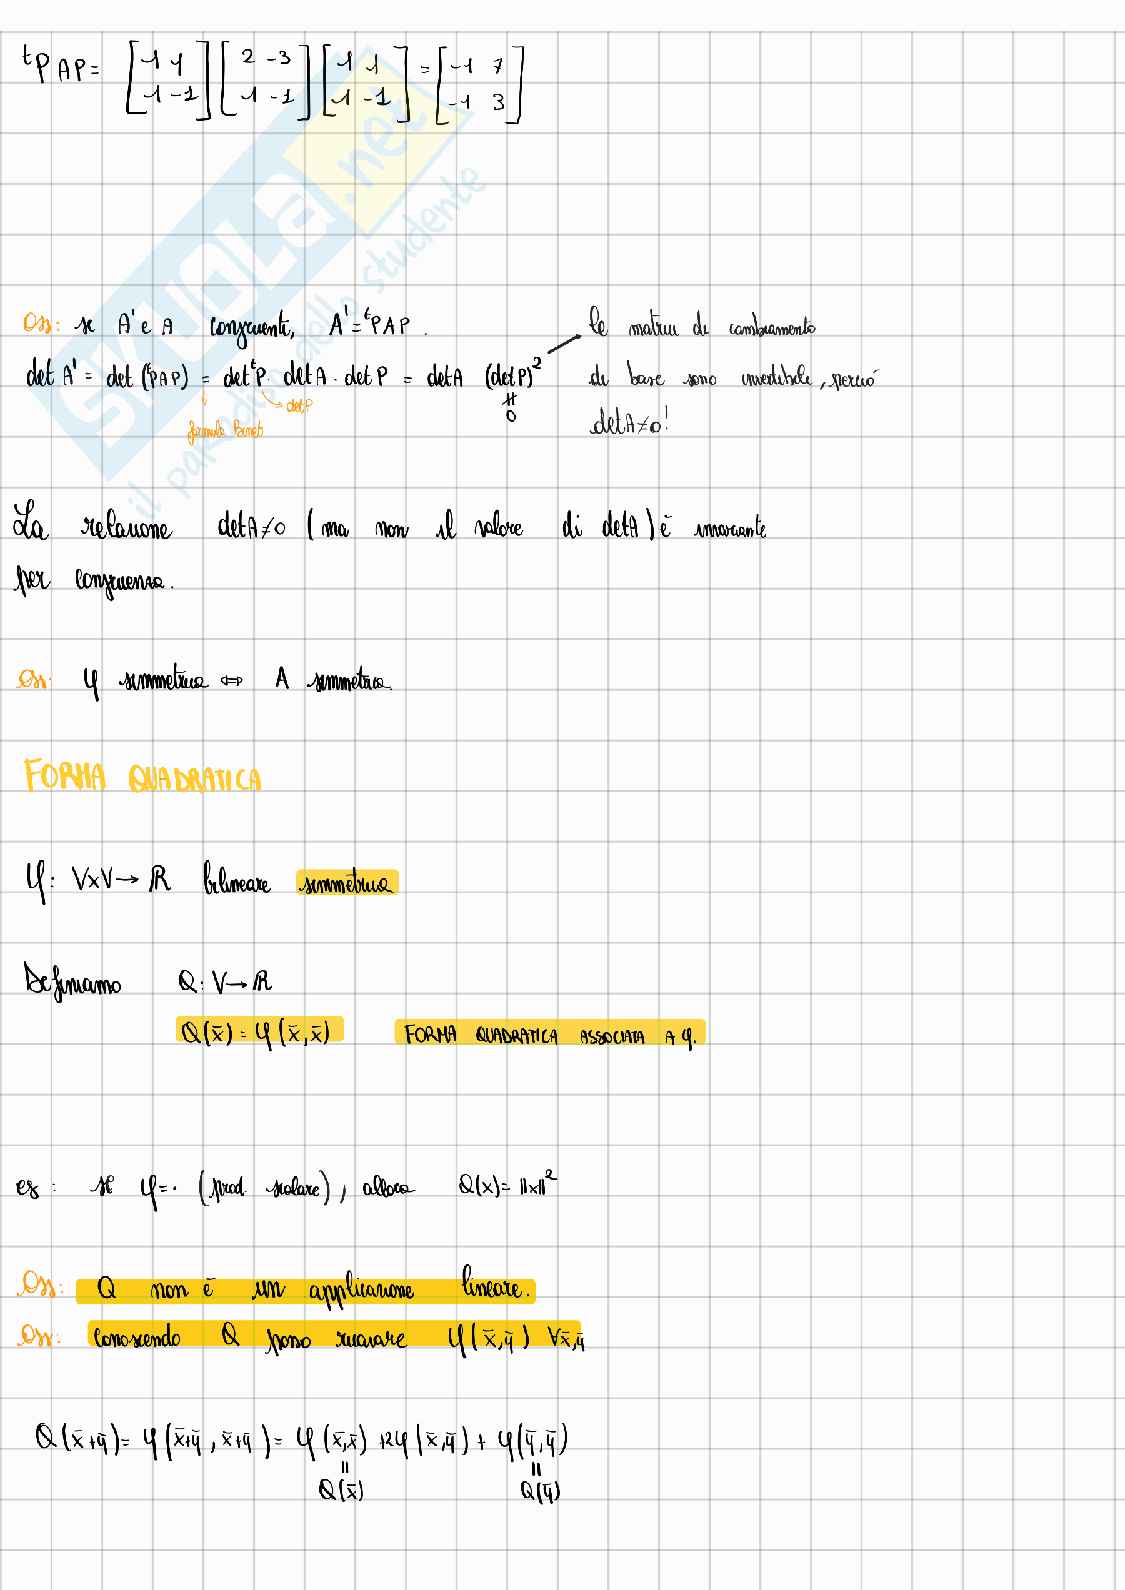 ᵗPAP = [1 1; 1 -1] [2 -3; 1 -1] [1 1; 1 -1] = [-1 7; -1 3]
Oss: se A' e A congruente, A' = ᵗPAP.
det A' = det (ᵗPAP) = det ᵗP · det A · det P = det A (det P)²
→ detP
formula Binet
≠ 0
le matrici di cambiamento
di base sono invertibile, perciò
det A ≠ 0!
La relazione det A ≠ 0 (ma non il valore di det A) è invariante
per congruenza.
Oss: φ simmetrica ⇔ A simmetrica
FORMA QUADRATICA
φ: V×V → ℝ bilineare simmetrica
Definiamo Q: V → ℝ
Q(x̄) = φ(x̄,x̄) FORMA QUADRATICA ASSOCIATA A φ.
es: se φ = · (prod. scalare), allora Q(x) = ||x||²
Oss: Q non è un applicazione lineare.
Oss: Conoscendo Q posso ricavare φ(x̄,ȳ) ∀x̄,ȳ
Q(x̄+ȳ) = φ(x̄+ȳ, x̄+ȳ) = φ(x̄,x̄) + 2φ(x̄,ȳ) + φ(ȳ,ȳ)
= =
Q(x̄) Q(ȳ)
SKUOLA.net
il paradiso dello studente